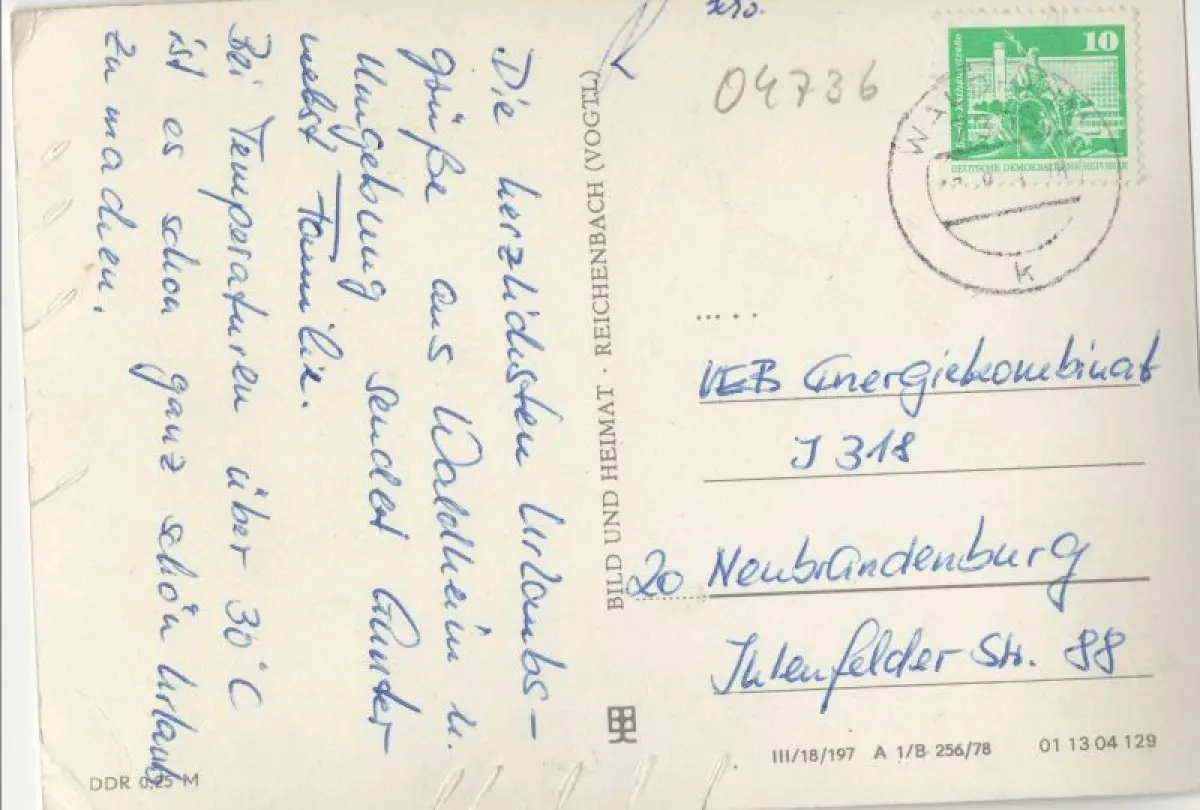 Die herzlichsten Urlaubs-
grüße aus Waldheim u.
Umgebung sendet Gunter
nebst Familie.
Bei Temperaturen über 30°C
ist es schon ganz schön Urlaub
zu machen.
BILD UND HEIMAT · REICHENBACH (VOGTL)
04736
10
DEUTSCHE DEMOKRATISCHE REPUBLIK
k
VEB Energiekombinat
J 318
20 Neubrandenburg
Ihlenfelder Str. 88
III/18/197 A 1/B 256/78 01 13 04 129
DDR 0,25 M